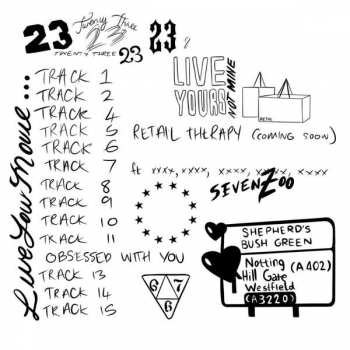 23
Twenty Three
23
TWENTY THREE
23
23
LIVE
YOURS
NOT MINE
RETAIL
Live You
TRACK 1
TRACK 2
TRACK 4
TRACK 5
RETAIL THERAPY (COMING SOON)
TRACK 6
TRACK 7 ft xxxx, xxxx, xxxx, xxxx, xxxx
TRACK 8
SEVENZOO
TRACK 9
TRACK 10
TRACK 11
OBSESSED WITH YOU
TRACK 13
TRACK 14
TRACK 15
6 7
6
SHEPHERD'S
BUSH GREEN
Notting
Hill Gate (A402)
Westfield
(A3220)